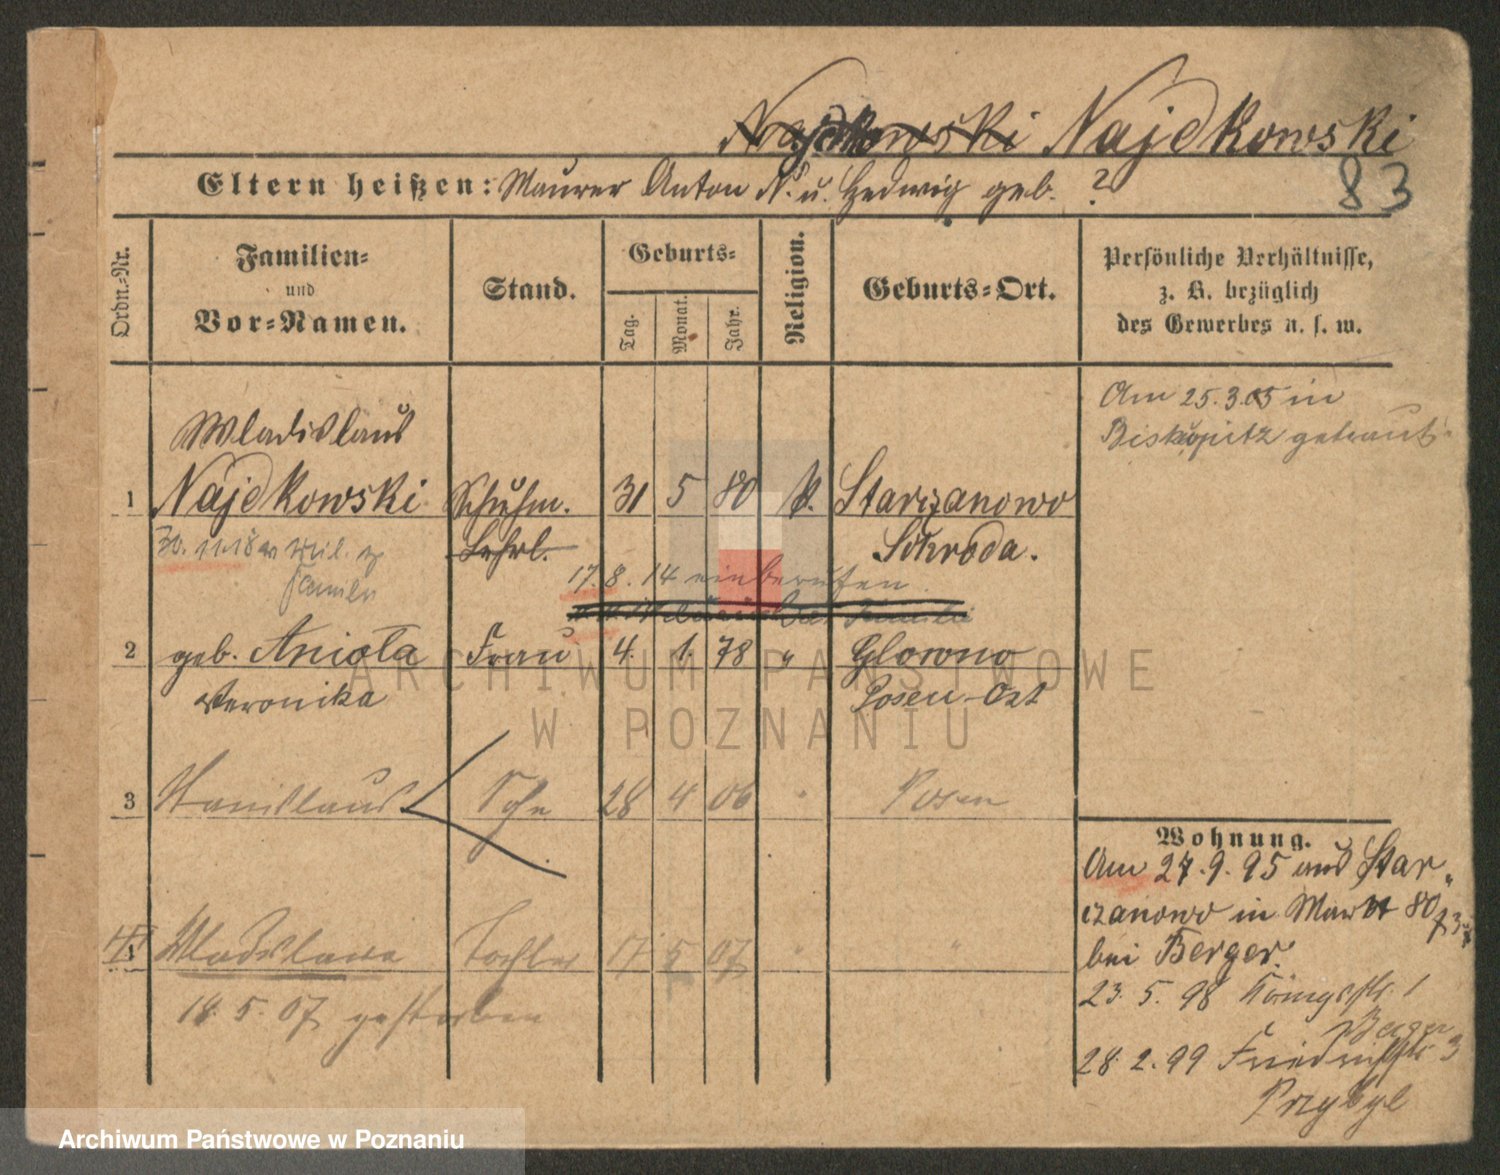 Najdkowski Najdkowski
Eltern heißen: Maurer Anton N. u. Hedwig geb. ?
83
Ordn.-Nr.
Familien- und Vor-Namen.
Stand.
Geburts-
Tag.
Monat.
Jahr.
Religion.
Geburts-Ort.
Persönliche Verhältnisse,
z. B. bezüglich
des Gewerbes u. s. w.
Am 25.3.05 in
getraut.
Wladislaus
1 Najdkowski Schuhm. 31 5 80 k. Starczanowo
Lehrl. Schroda.
30. 11. 18
Familie
17. 8. 14 einberufen
2 geb. Aniola Frau 4. 1. 78 " Glowno
Veronika Posen-Ost
3 Stanislaus Sohn 28 4 06 " Posen
4 Wladislawa Tochter 17 5 07 " "
18. 5. 07 gestorben
Wohnung.
Am 27. 9. 95 aus Star-
czanowo in Markt 80
bei Berger.
23. 5. 98 Königsstr. 1
Berger
28. 2. 99 Friedrichstr. 3
Przybyl
ARCHIWUM PAŃSTWOWE
W POZNANIU
Archiwum Państwowe w Poznaniu